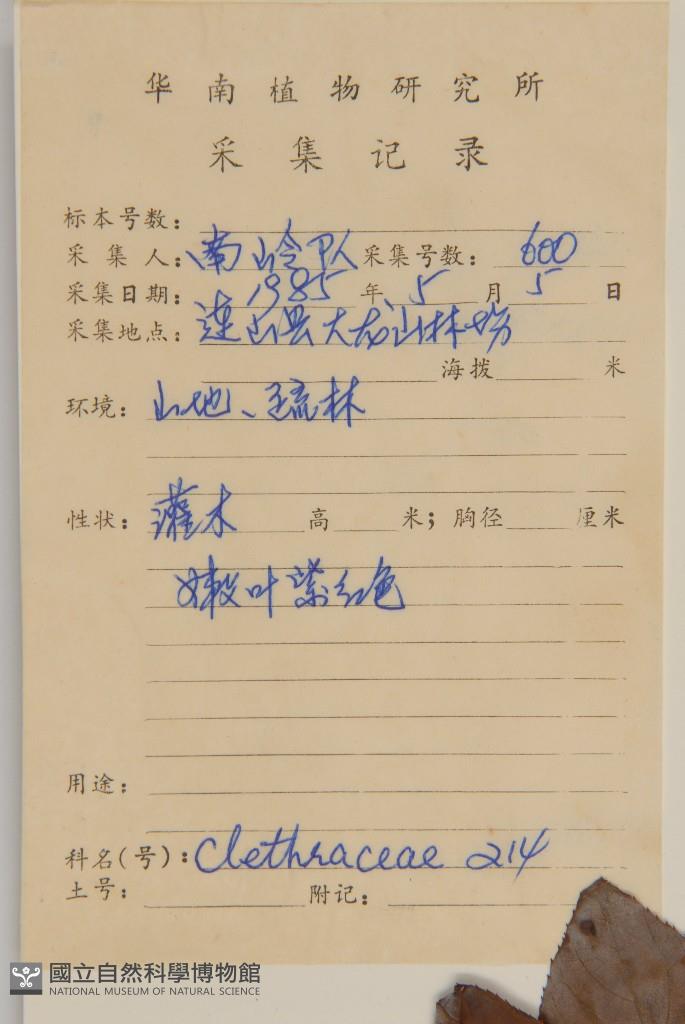 华南植物研究所
采集记录
标本号数：
采集人：南岭队 采集号数：600
采集日期：1985年5月5日
采集地点：连山县大龙山林场
海拨 米
环境：山地、疏林
性状：灌木 高 米；胸径 厘米
嫩叶紫红色
用途：
科名(号)：Clethraceae 214
土号： 附记：
國立自然科學博物館
NATIONAL MUSEUM OF NATURAL SCIENCE